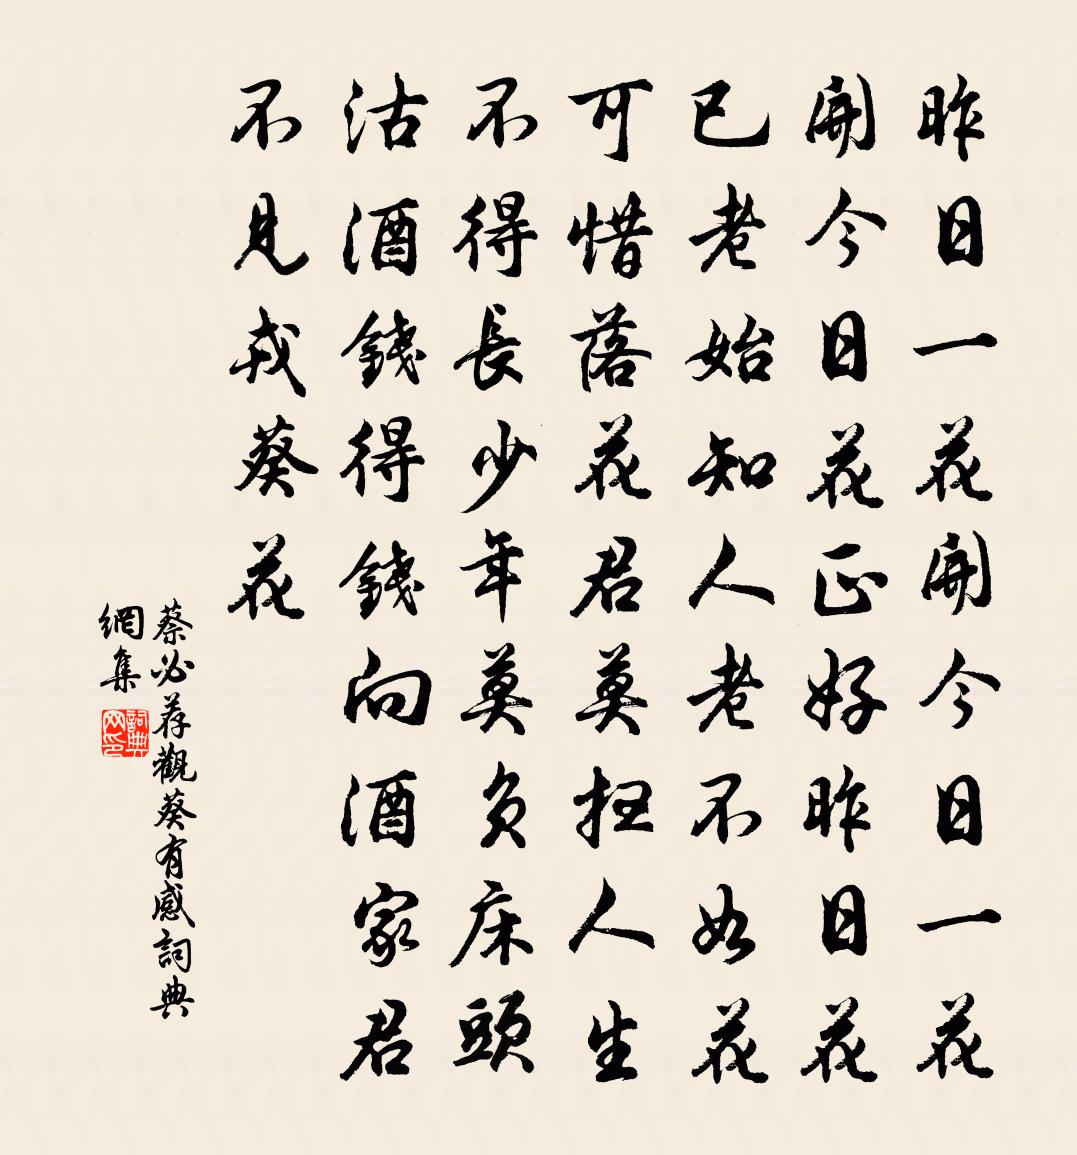 昨日一花開今日一花
開今日花正好昨日花
已老始知人老不如花
可惜落花君莫掃人生
不得長少年莫負床頭
沽酒錢得錢向酒家君
不見戎葵花
蔡必荐觀葵有感詞典
網集
詞典網印